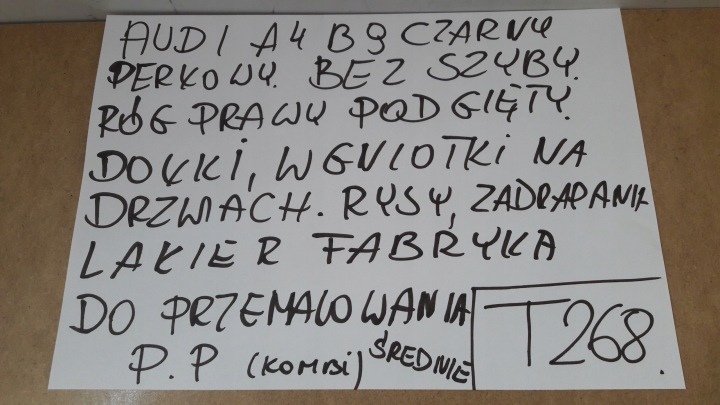 AUDI A4 B9 CZARNY
PERŁOWY. BEZ SZYBY.
RÓG PRAWY PODGIĘTY.
DOŁKI, WGNIOTKI NA
DRZWIACH. RYSY, ZADRAPANIA
LAKIER FABRYKA
DO PRZEMALOWANIA
P.P (KOMBI) ŚREDNIE
T268.